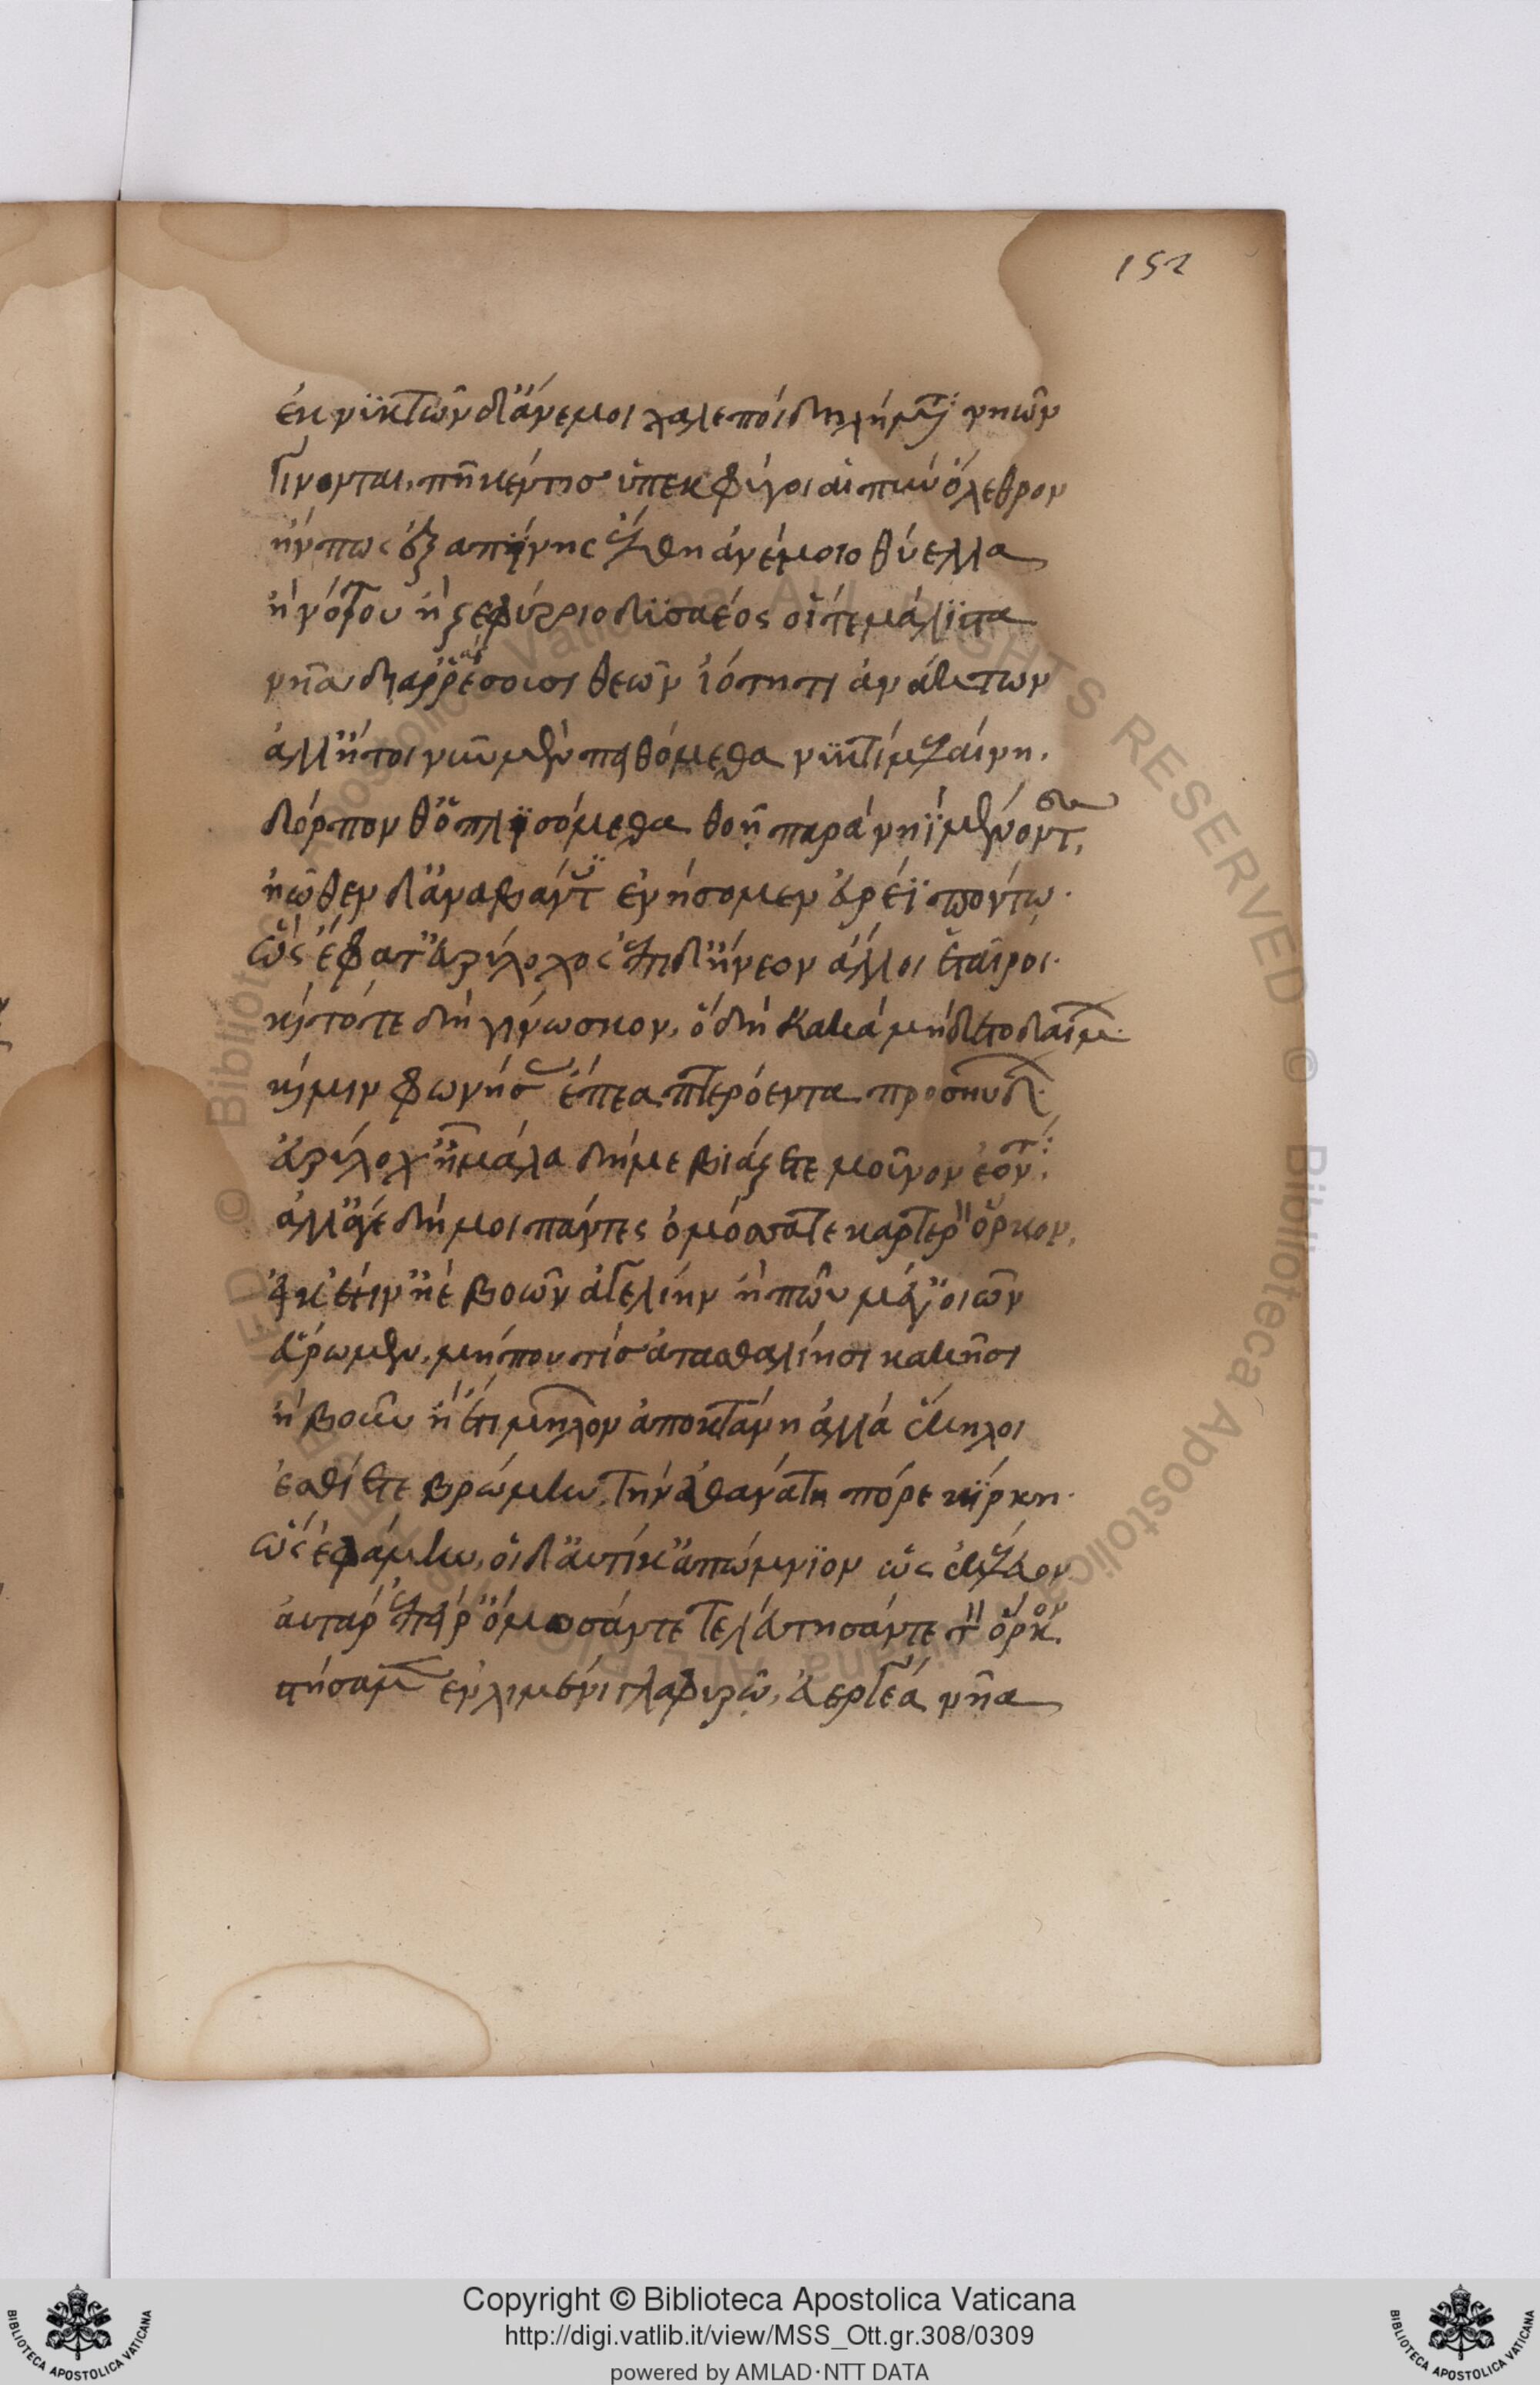 152
ἐκ νϋκτῶν δ' ἄνεμοι χαλεποὶ δηλήματ νηῶν
γίνονται. πῆ κέν τισ ὑπεκφύγοι αἰπὺν ὄλεθρον
ἤν πως ἐξαπίνης ἔλθη ἀνέμοιο θύελλα
ἢ νότου ἢ ζεφύροιο δϋσαέος οἵτε μάλϊστα
νῆα διαρρέσουσι θεῶν ἰότητι ἀνάκτων
ἀλλ' ἤτοι νῦν μὲν πειθόμεθα νϋκτὶ μελαίνη.
δόρπον θ' ὁπλϊσόμεθα θοῇ παρὰ νηῒ μένοντ
ἠῶθεν δ' ἀναβάντ ἐνήσομεν εὐρέϊ πόντω.
ὣς ἔφατ' εὐρύλοχος ἐπὶ δ' ἤνεον ἄλλοι ἑταῖροι.
καὶ τότε δὴ γίνωσκον, ὃ δὴ κακὰ μήδετο δαίμ
καί μιν φωνήσ ἔπεα πτερόεντα προσηύδ
εὐρύλοχ' ἦ μάλα δή με βιάζετε μοῦνον ἐόντ
ἀλλ' ἄγε δή μοι πάντες ὀμόσατε καρτερ ὅρκον.
εἴ κέ τιν' ἠὲ βοῶν ἀγελίην ἢ πῶυ μέγ' οἰῶν
εὕρωμεν, μή που τίσ ἀτασθαλίησι κακῆσι
ἢ βοῦν ἠέ τι μῆλον ἀποκτάνη ἀλλὰ ἕκηλοι
ἐσθίετε βρώμην, τὴν ἀθανάτη πόρε κίρκη.
ὣς ἐφάμην, οἱ δ' αὐτίκ' ἀπώμνϋον ὡς ἐκέλευον
αὐτὰρ ἐπεί ῥ' ὄμοσάν τε τελεύτησάν τε τ ὅρκον
στήσαμ ἐν λιμένι γλαφυρῶ, εὐεργέα νῆα
Copyright © Biblioteca Apostolica Vaticana
http://digi.vatlib.it/view/MSS_Ott.gr.308/0309
powered by AMLAD·NTT DATA